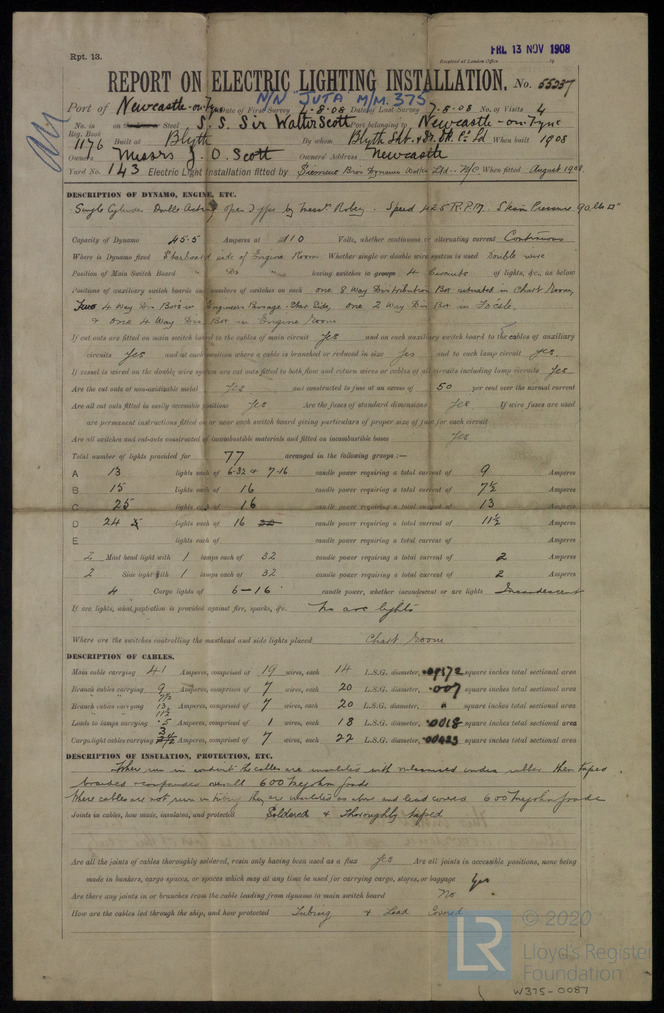 Rpt. 13.
Received at London Office
FRI. 13 NOV 1908
REPORT ON ELECTRIC LIGHTING INSTALLATION. No. 55237
N/N "JUTA" M/M. 375
Port of Newcastle-on-Tyne Date of First Survey 1-8-08 Date of Last Survey 7-8-08 No. of Visits 4
No. in Reg. Book 1176 on the Steel S. S. Sir Walter Scott Port belonging to Newcastle-on-Tyne
Built at Blyth By whom Blyth Shb. & Dr. Dk. Co. Ld When built 1908
Owners Messrs J. O. Scott Owners' Address Newcastle
Yard No. 143 Electric Light Installation fitted by Siemens Bros Dynamo Works Ltd. N/C When fitted August 1908.
DESCRIPTION OF DYNAMO, ENGINE, ETC.
Single Cylinder Double Acting open type by Messrs Robey. Speed 425 R.P.M. Steam Pressure 90 lbs □"
Capacity of Dynamo 45.5 Amperes at 110 Volts, whether continuous or alternating current Continuous
Where is Dynamo fixed Starboard side of Engine Room Whether single or double wire system is used Double wire
Position of Main Switch Board " Do " having switches to groups 4 Circuits of lights, &c., as below
Positions of auxiliary switch boards and numbers of switches on each one 8 Way Distribution Box situated in Chart Room,
Two 4 Way Dis Boxes in Engineers Passage Star. Side, one 2 Way Dis Box in Focsle.
& one 4 Way Dis Box in Engine Room
If cut outs are fitted on main switch board to the cables of main circuit Yes and on each auxiliary switch board to the cables of auxiliary
circuits Yes and at each position where a cable is branched or reduced in size Yes and to each lamp circuit Yes.
If vessel is wired on the double wire system are cut outs fitted to both flow and return wires or cables of all circuits including lamp circuits Yes
Are the cut outs of non-oxidizable metal Yes and constructed to fuse at an excess of 50 per cent over the normal current
Are all cut outs fitted in easily accessible positions Yes Are the fuses of standard dimensions Yes If wire fuses are used
are permanent instructions fitted on or near each switch board giving particulars of proper size of fuse for each circuit
Are all switches and cut-outs constructed of incombustible materials and fitted on incombustible bases Yes
Total number of lights provided for 77 arranged in the following groups :—
A 13 lights each of 6-32 & 7-16 candle power requiring a total current of 9 Amperes
B 15 lights each of 16 candle power requiring a total current of 7½ Amperes
C 25 lights each of 16 candle power requiring a total current of 13 Amperes
D 24 lights each of 16 candle power requiring a total current of 11½ Amperes
E lights each of candle power requiring a total current of Amperes
2 Mast head light with 1 lamps each of 32 candle power requiring a total current of 2 Amperes
2 Side light with 1 lamps each of 32 candle power requiring a total current of 2 Amperes
4 Cargo lights of 6-16 candle power, whether incandescent or arc lights Incandescent
If arc lights, what protection is provided against fire, sparks, &c. No arc lights
Where are the switches controlling the masthead and side lights placed Chart Room
DESCRIPTION OF CABLES.
Main cable carrying 41 Amperes, comprised of 19 wires, each 14 L.S.G. diameter, .09372 square inches total sectional area
Branch cables carrying 9 7½ Amperes, comprised of 7 wires, each 20 L.S.G. diameter, .007 square inches total sectional area
Branch cables carrying 13 11½ Amperes, comprised of 7 wires, each 20 L.S.G. diameter, " square inches total sectional area
Leads to lamps carrying .5 Amperes, comprised of 1 wires, each 18 L.S.G. diameter, .0018 square inches total sectional area
Cargo light cables carrying 3 Amperes, comprised of 7 wires, each 22 L.S.G. diameter, square inches total sectional area
DESCRIPTION OF INSULATION, PROTECTION, ETC.
Where run in conduit the cables are insulated with vulcanised india rubber then taped
braided & compounded overall 600 Megohm grade
Where cables are not run in tubing they are insulated as above and lead covered 600 Megohm grade
Joints in cables, how made, insulated, and protected Soldered & Thoroughly taped
Are all the joints of cables thoroughly soldered, resin only having been used as a flux Yes Are all joints in accessible positions, none being
made in bunkers, cargo spaces, or spaces which may at any time be used for carrying cargo, stores, or baggage Yes
Are there any joints in or branches from the cable leading from dynamo to main switch board No
How are the cables led through the ship, and how protected Tubing & Lead Covered
LR © 2020
Lloyd's Register
Foundation
W375-0087